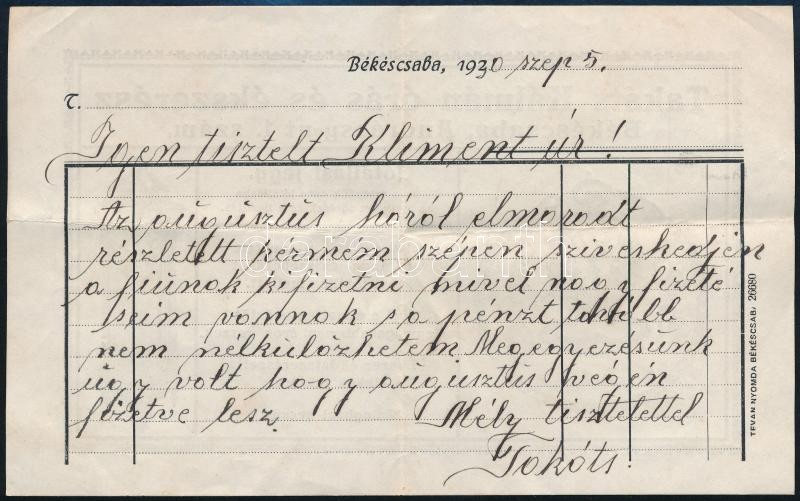 Békéscsaba, 1930 szep 5.
T.
Igen tisztelt Kliment úr!
Az augusztus hóról elmaradt
részletett kérném szépen sziveskedjen
a fiúnak kifizetni mivel nagy fizeté
seim vannak s a pénzt tovább
nem nélkülözhetem. Megegyezésünk
úgy volt hogy augusztus végén
fizetve lesz. Mély tisztelettel
Takáts.
TEVAN NYOMDA BÉKÉSCSABA 26680